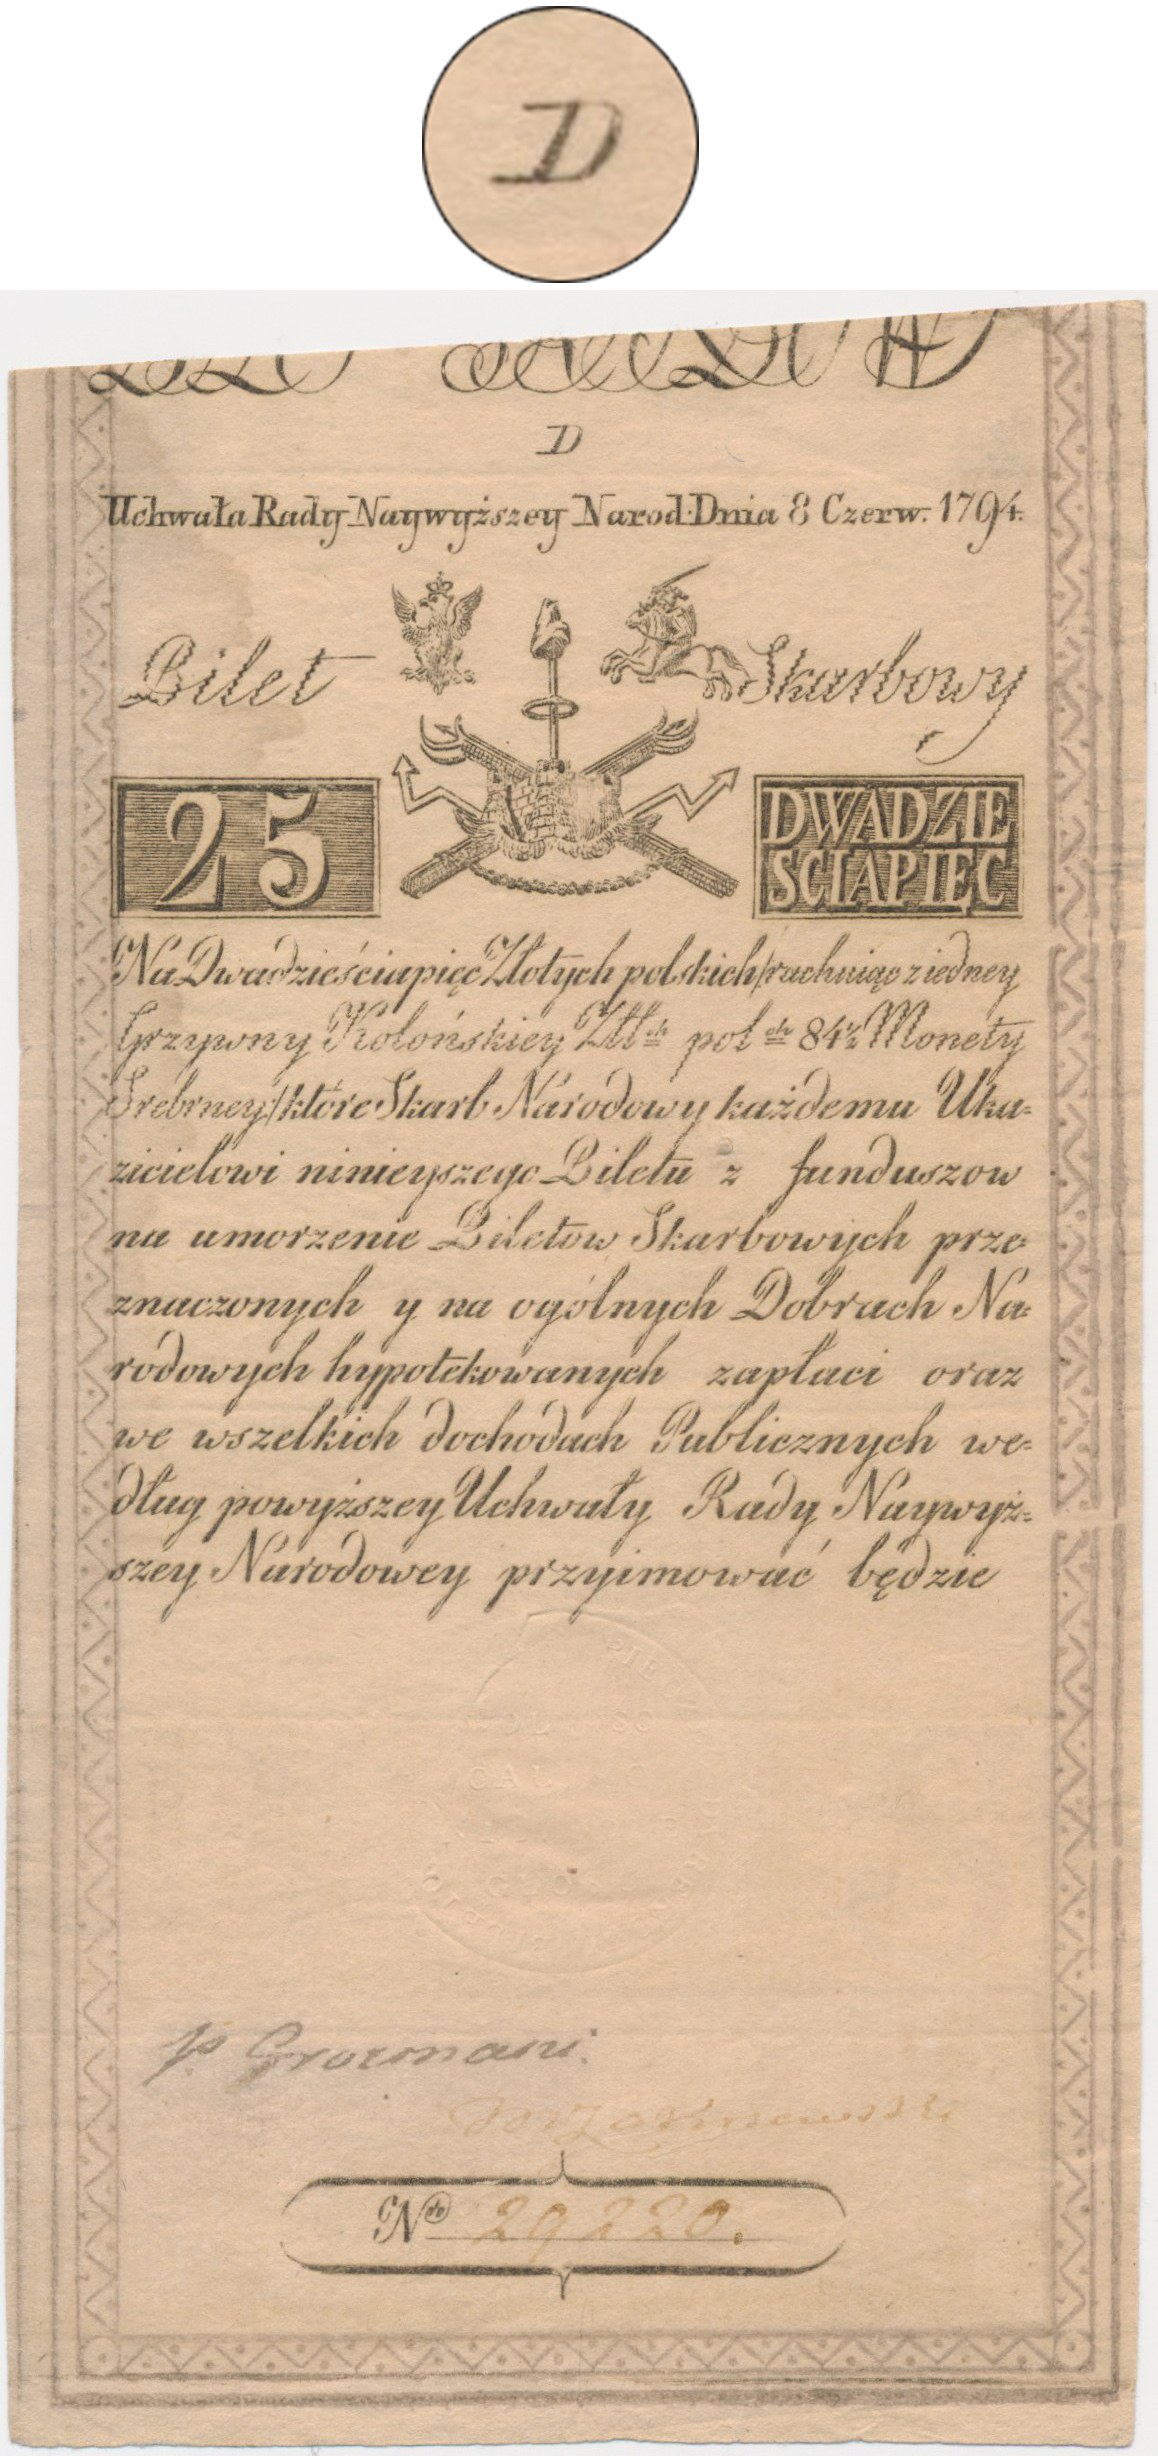 D
D
Uchwała Rady Naywyższey Narod: Dnia 8 Czerw. 1794.
Bilet Skarbowy
25
DWADZIE
SCIAPIĘC
Na Dwadzieściapięć Złotych polskich /rachuiąc z iedney
Grzywny Kolońskiey Złł ch pol ch 84½ Monety
Srebrney/ które Skarb Narodowy każdemu Uka=
zicielowi ninieyszego Biletu z funduszow
na umorzenie Biletow Skarbowych prze=
znaczonych y na ogólnych Dobrach Na=
rodowych hypotekowanych zapłaci oraz
we wszelkich dochodach Publicznych we=
dług powyższey Uchwały Rady Naywyż=
szey Narodowey przyimować będzie
p Grozmani.
No 29220.